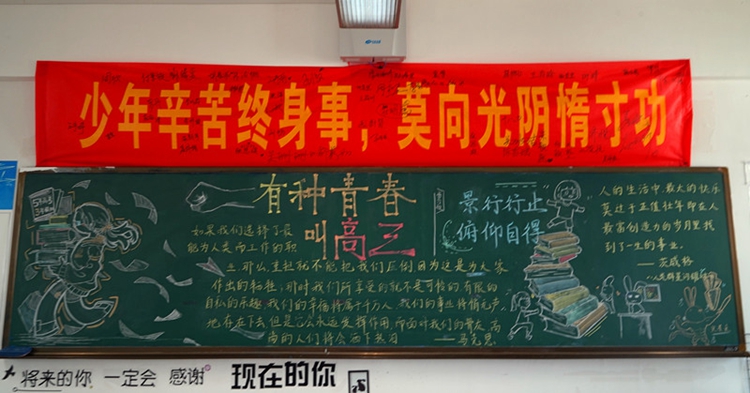 少年辛苦终身事，莫向光阴惰寸功
有种青春
叫高三
如果我们选择了最
能为人类而工作的职
业,那么,重担就不能把我们压倒,因为这是为大家
作出的牺牲,那时我们所享受的就不是可怜的有限的
自私的乐趣,我们的幸福将属于千万人,我们的事业将悄然无声
地存在下去,但是它会永远发挥作用,而面对我们的骨灰,高
尚的人们将会洒下热泪
——马克思
景行行止
俯仰自得
人的生活中,最大的快乐
莫过于正值壮年即在人
最富创造力的岁月里找
到了一生的事业。
——茨威格
《人类群星闪耀时》
将来的你 一定会 感谢 现在的你